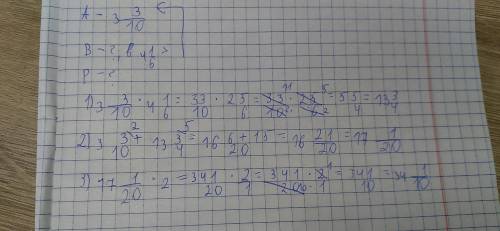 А - 3 3/10 ←
В - ?, в 4 1/6 >
Р - ?
1) 3 3/10 · 4 1/6 = 33/10 · 25/6 = 33/10 · 25/6 = 55/4 = 13 3/4
2) 3 3/10 + 13 3/4 = 16 6+15/20 = 16 21/20 = 17 1/20
3) 17 1/20 · 2 = 341/20 · 2/1 = 341/20 · 2/1 = 341/10 = 34 1/10